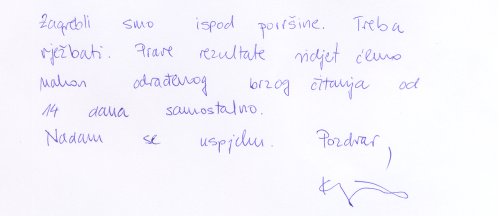 Zagrebli smo ispod površine. Treba
vježbati. Prave rezultate vidjet ćemo
nakon odrađenog brzog čitanja od
14 dana samostalno.
Nadam se uspjehu. Pozdrav,